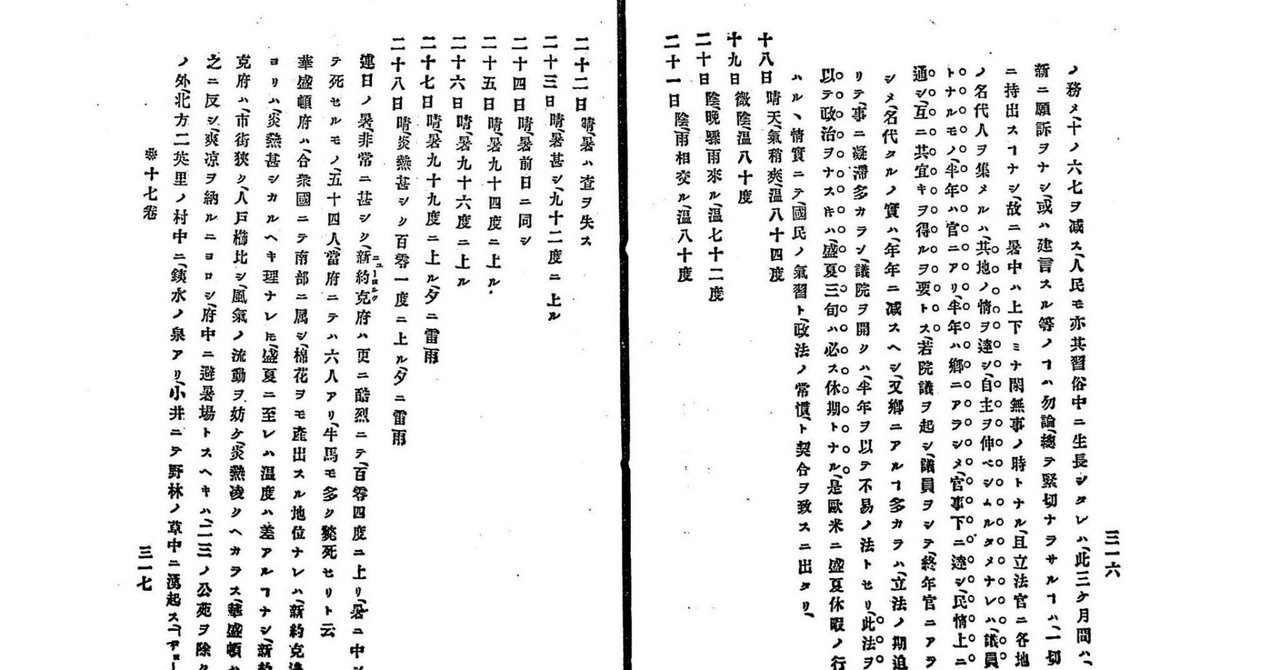 三一六
ノ務メ、十ノ六七ヲ減ス、人民モ亦其習俗中ニ生長シタレハ、此三ケ月間ハ、
新ニ願訴ヲナシ、或ハ建言スル等ノヿハ勿論、總テ緊切ナラサルヿハ、一切
ニ持出スヿナシ、故ニ暑中ハ上下ミナ閑無事ノ時トナル、且立法官ニ各地
ノ名代人ヲ集メルハ、其地ノ情ヲ達シ、自主ヲ伸ベシムルタメナレハ、議員
トナルモノ、半年ハ官ニアリ、半年ハ鄉ニアラシメ、官事下ニ達シ、民情上ニ
通シ、互ニ其宜キヲ得ルヲ要トス、若院議ヲ起シ、議員ヲシテ、終年官ニアラ
シメ、名代タルノ實ハ、年年ニ減スヘシ、又鄉ニアルヿ多カラハ、立法ノ期迫
リテ、事ニ凝滯多カラン、議院ヲ開クハ、半年ヲ以テ不易ノ法トセリ、此法ヲ
以テ政治ヲナスキハ、盛夏三旬ハ必ス休期トナル、是歐米ニ盛夏休暇ノ行
ハルヽ情實ニテ、國民ノ氣習ト、政法ノ常慣ト契合ヲ致スニ出タリ、
十八日 晴天、氣稍爽、溫八十四度
十九日 微陰、溫八十度
二十日 陰、晚驟雨來ル、溫七十二度
二十一日 陰、雨相交ル、溫八十度
二十二日 晴、暑ハ查ヲ失ス
二十三日 晴、暑甚シ、九十二度ニ上ル
二十四日 晴、暑前日ニ同シ
二十五日 晴、暑九十四度ニ上ル
二十六日 晴、暑九十六度ニ上ル
二十七日 晴、暑九十九度ニ上ル、夕ニ雷雨
二十八日 晴、炎熱甚シク、百零一度ニ上ル、夕ニ雷雨
連日ノ暑、非常ニ甚シク、新約克府ハ更ニ酷烈ニテ、百零四度ニ上リ、暑ニ中リ
ニューヨルク
テ死セルモノ、五十四人、當府ニテハ六人アリ、牛馬モ多ク斃死セリト云
華盛頓府ハ、合衆國ニテ南部ニ屬シ、棉花ヲモ產出スル地位ナレハ、新約克邊
ヨリハ、炎熱甚シカルヘキ理ナレ𪜈、盛夏ニ至レハ溫度ハ差アルヿナシ、新約
克府ハ、市街狹ク、人戶櫛比シ、風氣ノ流動ヲ妨ケ、炎熱凌クヘカラス、華盛頓ハ
之ニ反シ、爽涼ヲ納ルニヨロシ、府中ニ避暑場トスヘキハ、二三ノ公苑ヲ除ク
ノ外、北方二英里ノ村中ニ、鐵水ノ泉アリ、小井ニテ野林ノ草中ニ湧起ス
※十七卷
三一七